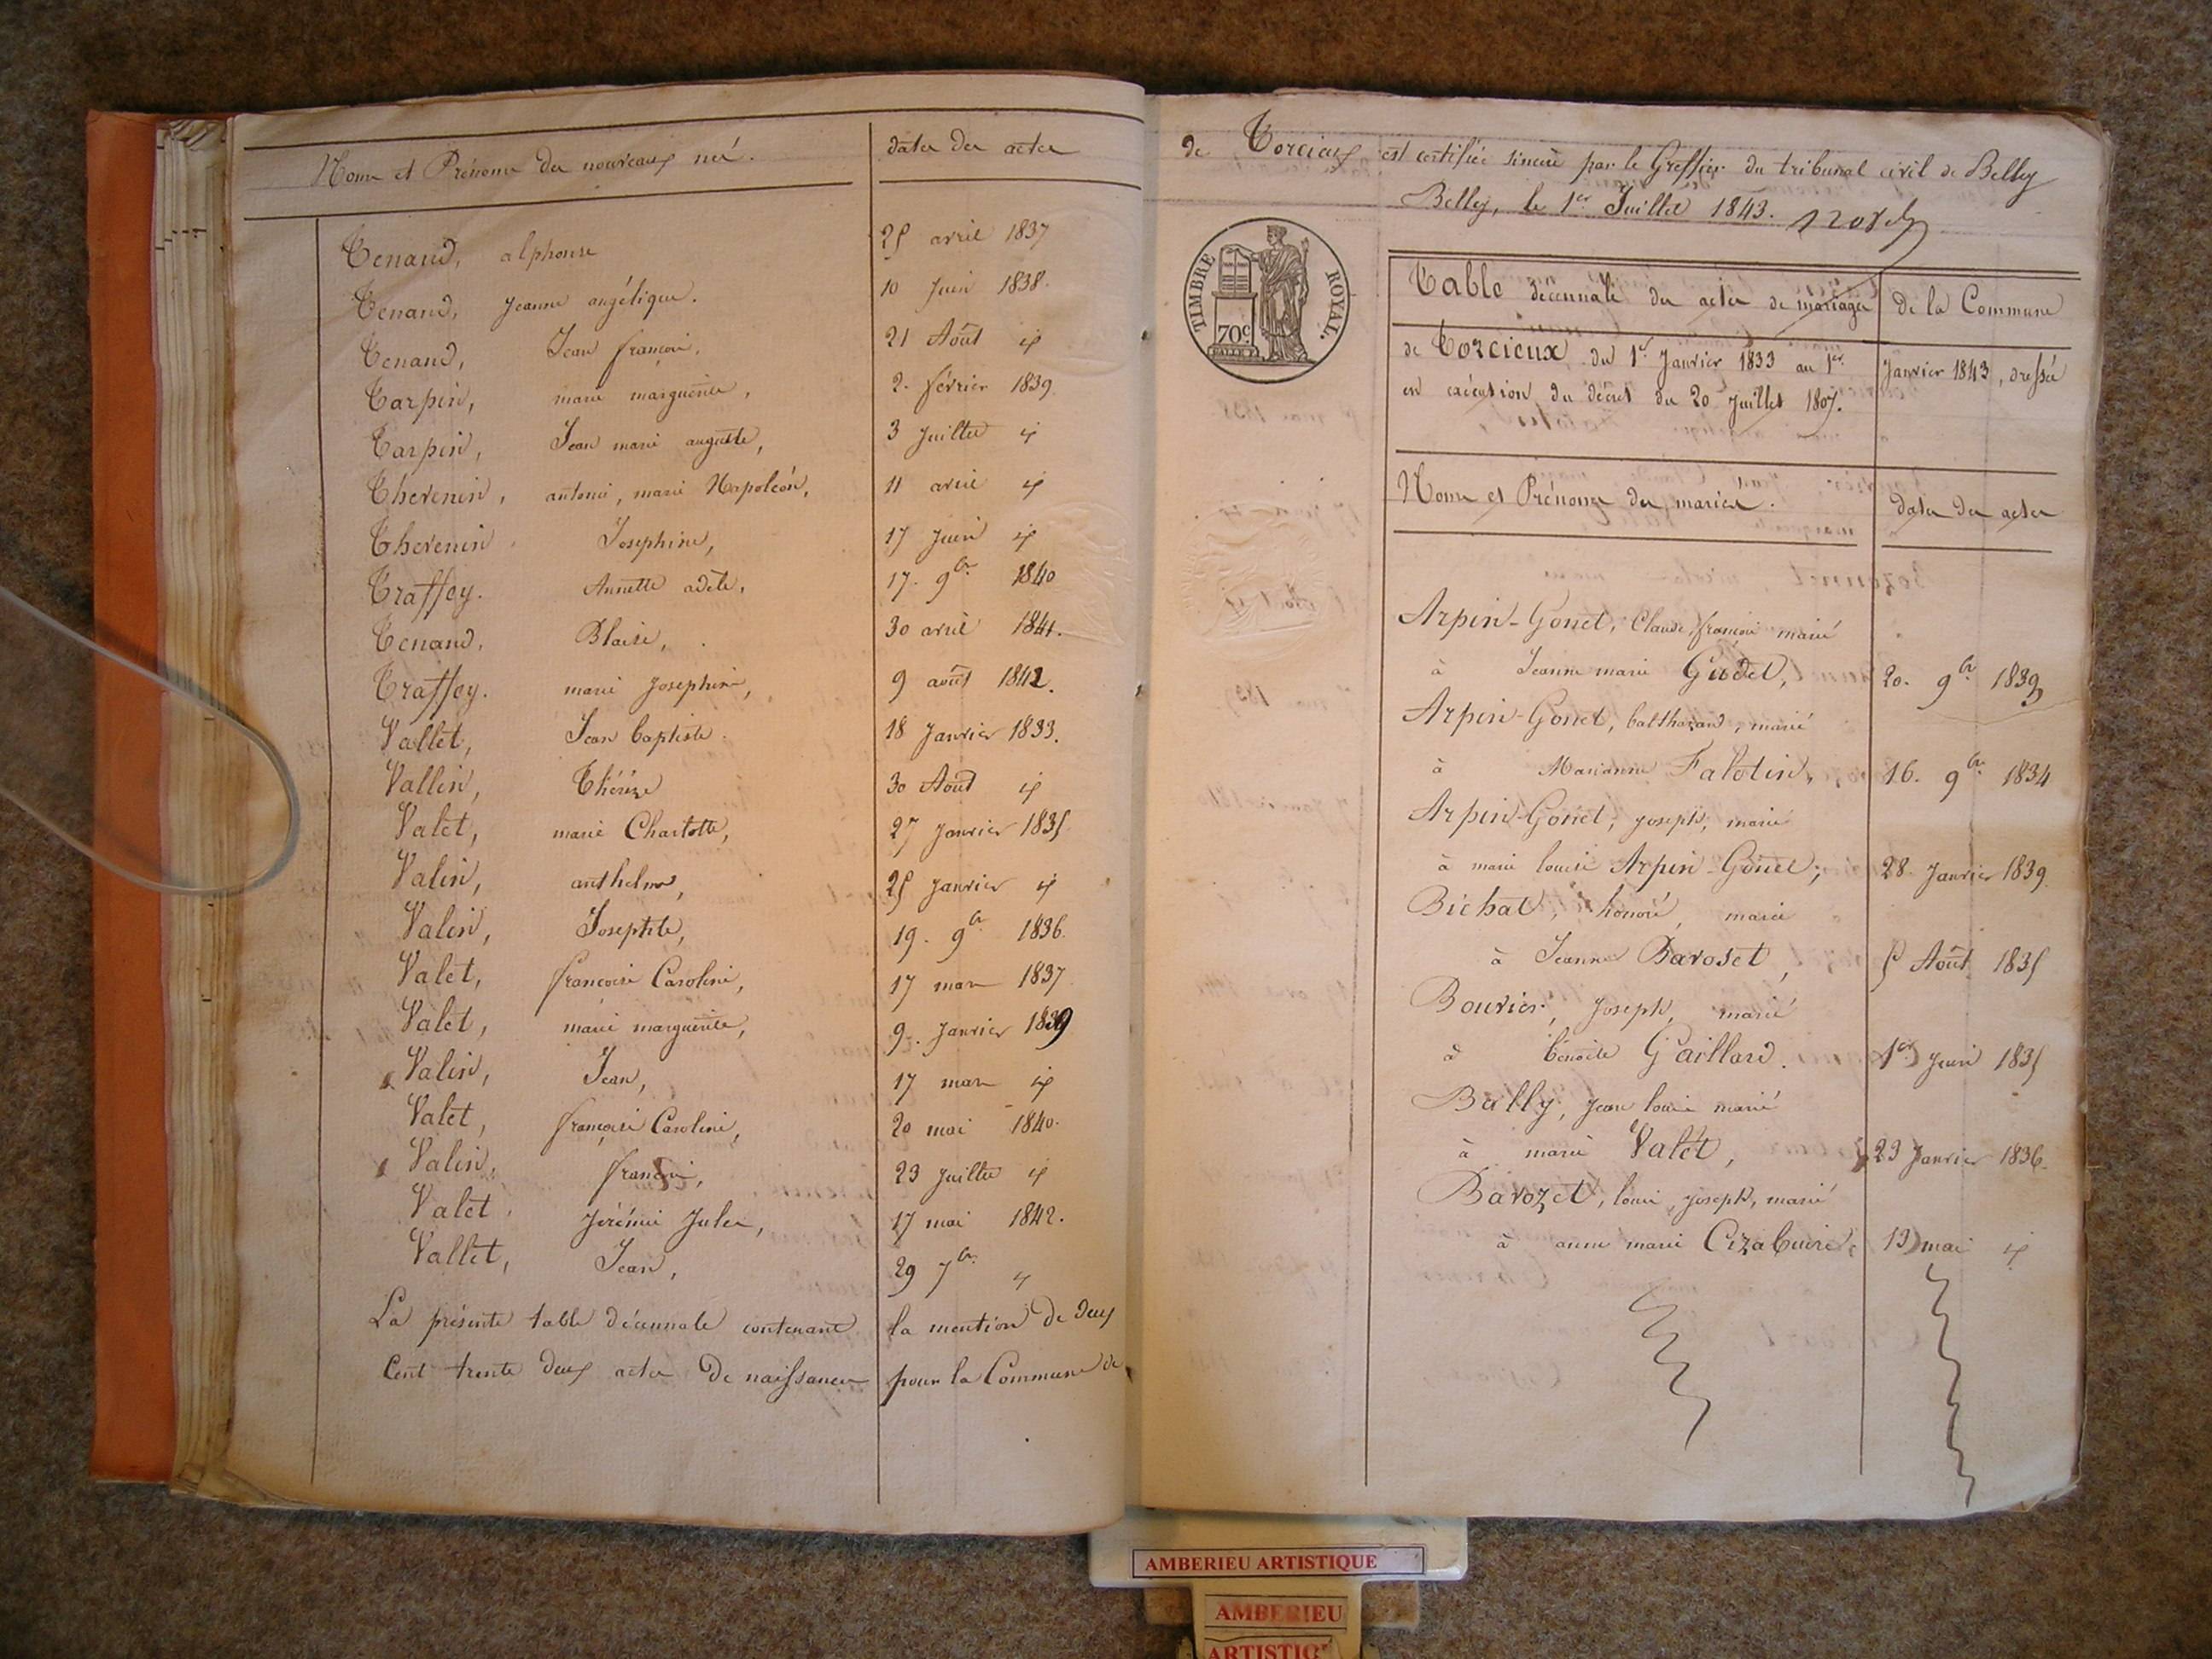 Noms et Prénoms des nouveaux nés.
dates des actes
Tenand, alphonse 25 avril 1837
Tenand, Jeanne angélique. 10 Juin 1838.
Tenand, Jean françois, 21 Août id
Tarpin, marie marguerite, 2. février 1839
Tarpin, Jean marie auguste, 3 Juillet id
Thevenin, antoine, marie Napoléon, 11 avril id
Thevenin Josephine, 17 Juin id
Traffey. Annette adèle, 17. 9br 1840
Tenand, Blaise, 30 avril 1841.
Traffey. marie Josephine, 9 août 1842.
Vallet, Jean baptiste. 18 Janvier 1833.
Vallin, Thérèze 30 Août id
Valet, marie Charlotte, 27 Janvier 1835
Valin, anthelme, 25 Janvier id
Valin, Josephte, 19. 9br 1836.
Valet, françoise Caroline, 17 mars 1837
Valet, marie marguerite, 9. Janvier 1839
Valin, Jean, 17 mars id
Valet, françoise Caroline, 20 mai 1840.
Valin, françois, 23 Juillet id
Valet, Jérémie Jules, 17 mai 1842.
Vallet, Jean, 29 7br id
La présente table décennale contenant la mention de deux
Cent trente deux actes de naissances pour la Commune de
de Torcieux est certifiée sincère par le Greffier du tribunal civil de Belley
Belley, le 1er Juillet 1843.
TIMBRE ROYAL.
70c
Table décennale des actes de mariages de la Commune
de Torcieux du 1er Janvier 1833 au 1er Janvier 1843, dressée
en exécution du décret du 20 Juillet 1807.
Noms et Prénoms des mariés. dates des actes
Arpin-Gonet, Claude françois marié
à Jeanne marie Gudet, 20. 9br 1839
Arpin-Gonet, balthazard, marié
à Marianne Falotin, 16. 9br 1834
Arpin-Gonet, joseph, marié
à marie louise Arpin-Gonet, 28 Janvier 1839.
Bichat, honoré, marié
à Jeanne Baroset, 5 Août 1835
Bouvier, Joseph, marié
à benoite Gaillard. 1er Juin 1835
Bally, Jean louis marié
à marie Valet, 23 Janvier 1836.
Barozet, louis, joseph, marié
à anne marie 13 mai id
AMBERIEU ARTISTIQUE
AMBERIEU
ARTISTIQ